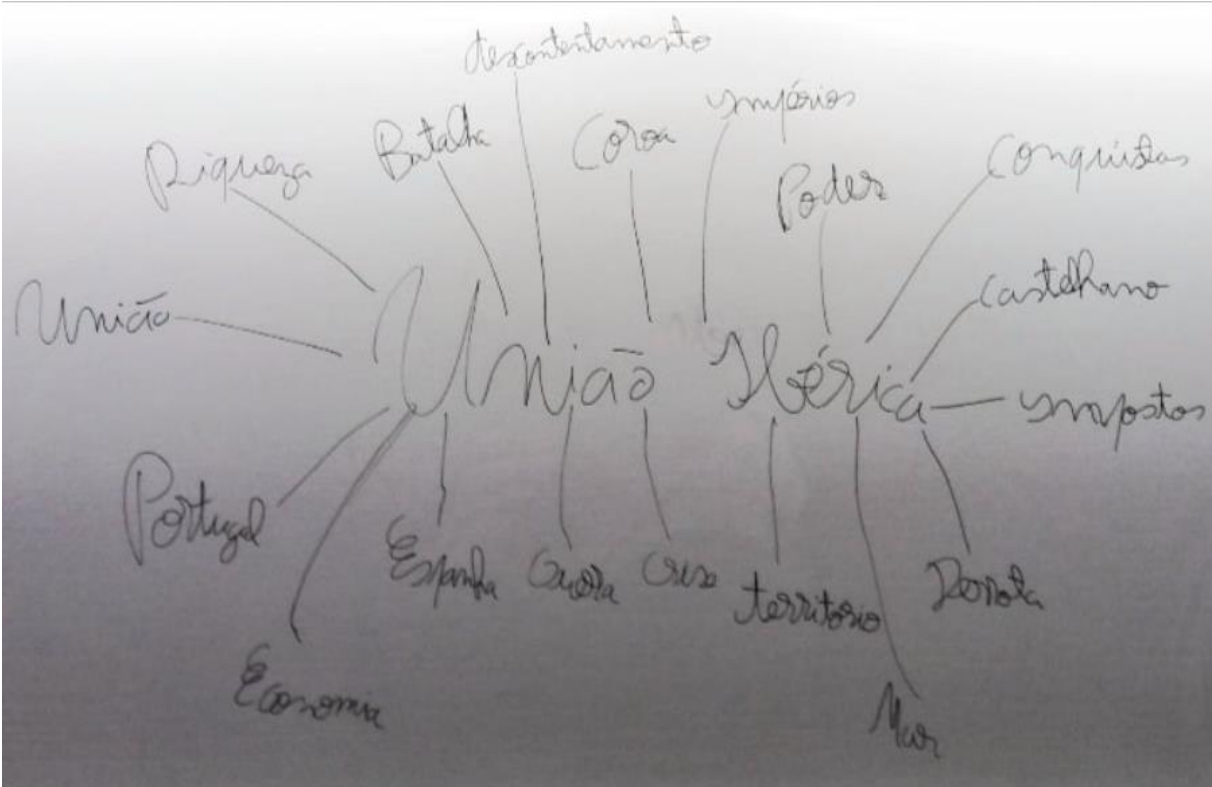 descontentamento
impérios
Batalha
Coroa
Riqueza
Poder
Conquistas
União
Castelhano
União Ibérica
impostos
Portugal
Espanha
Guerra
Crise
território
Derrota
Economia
Mar